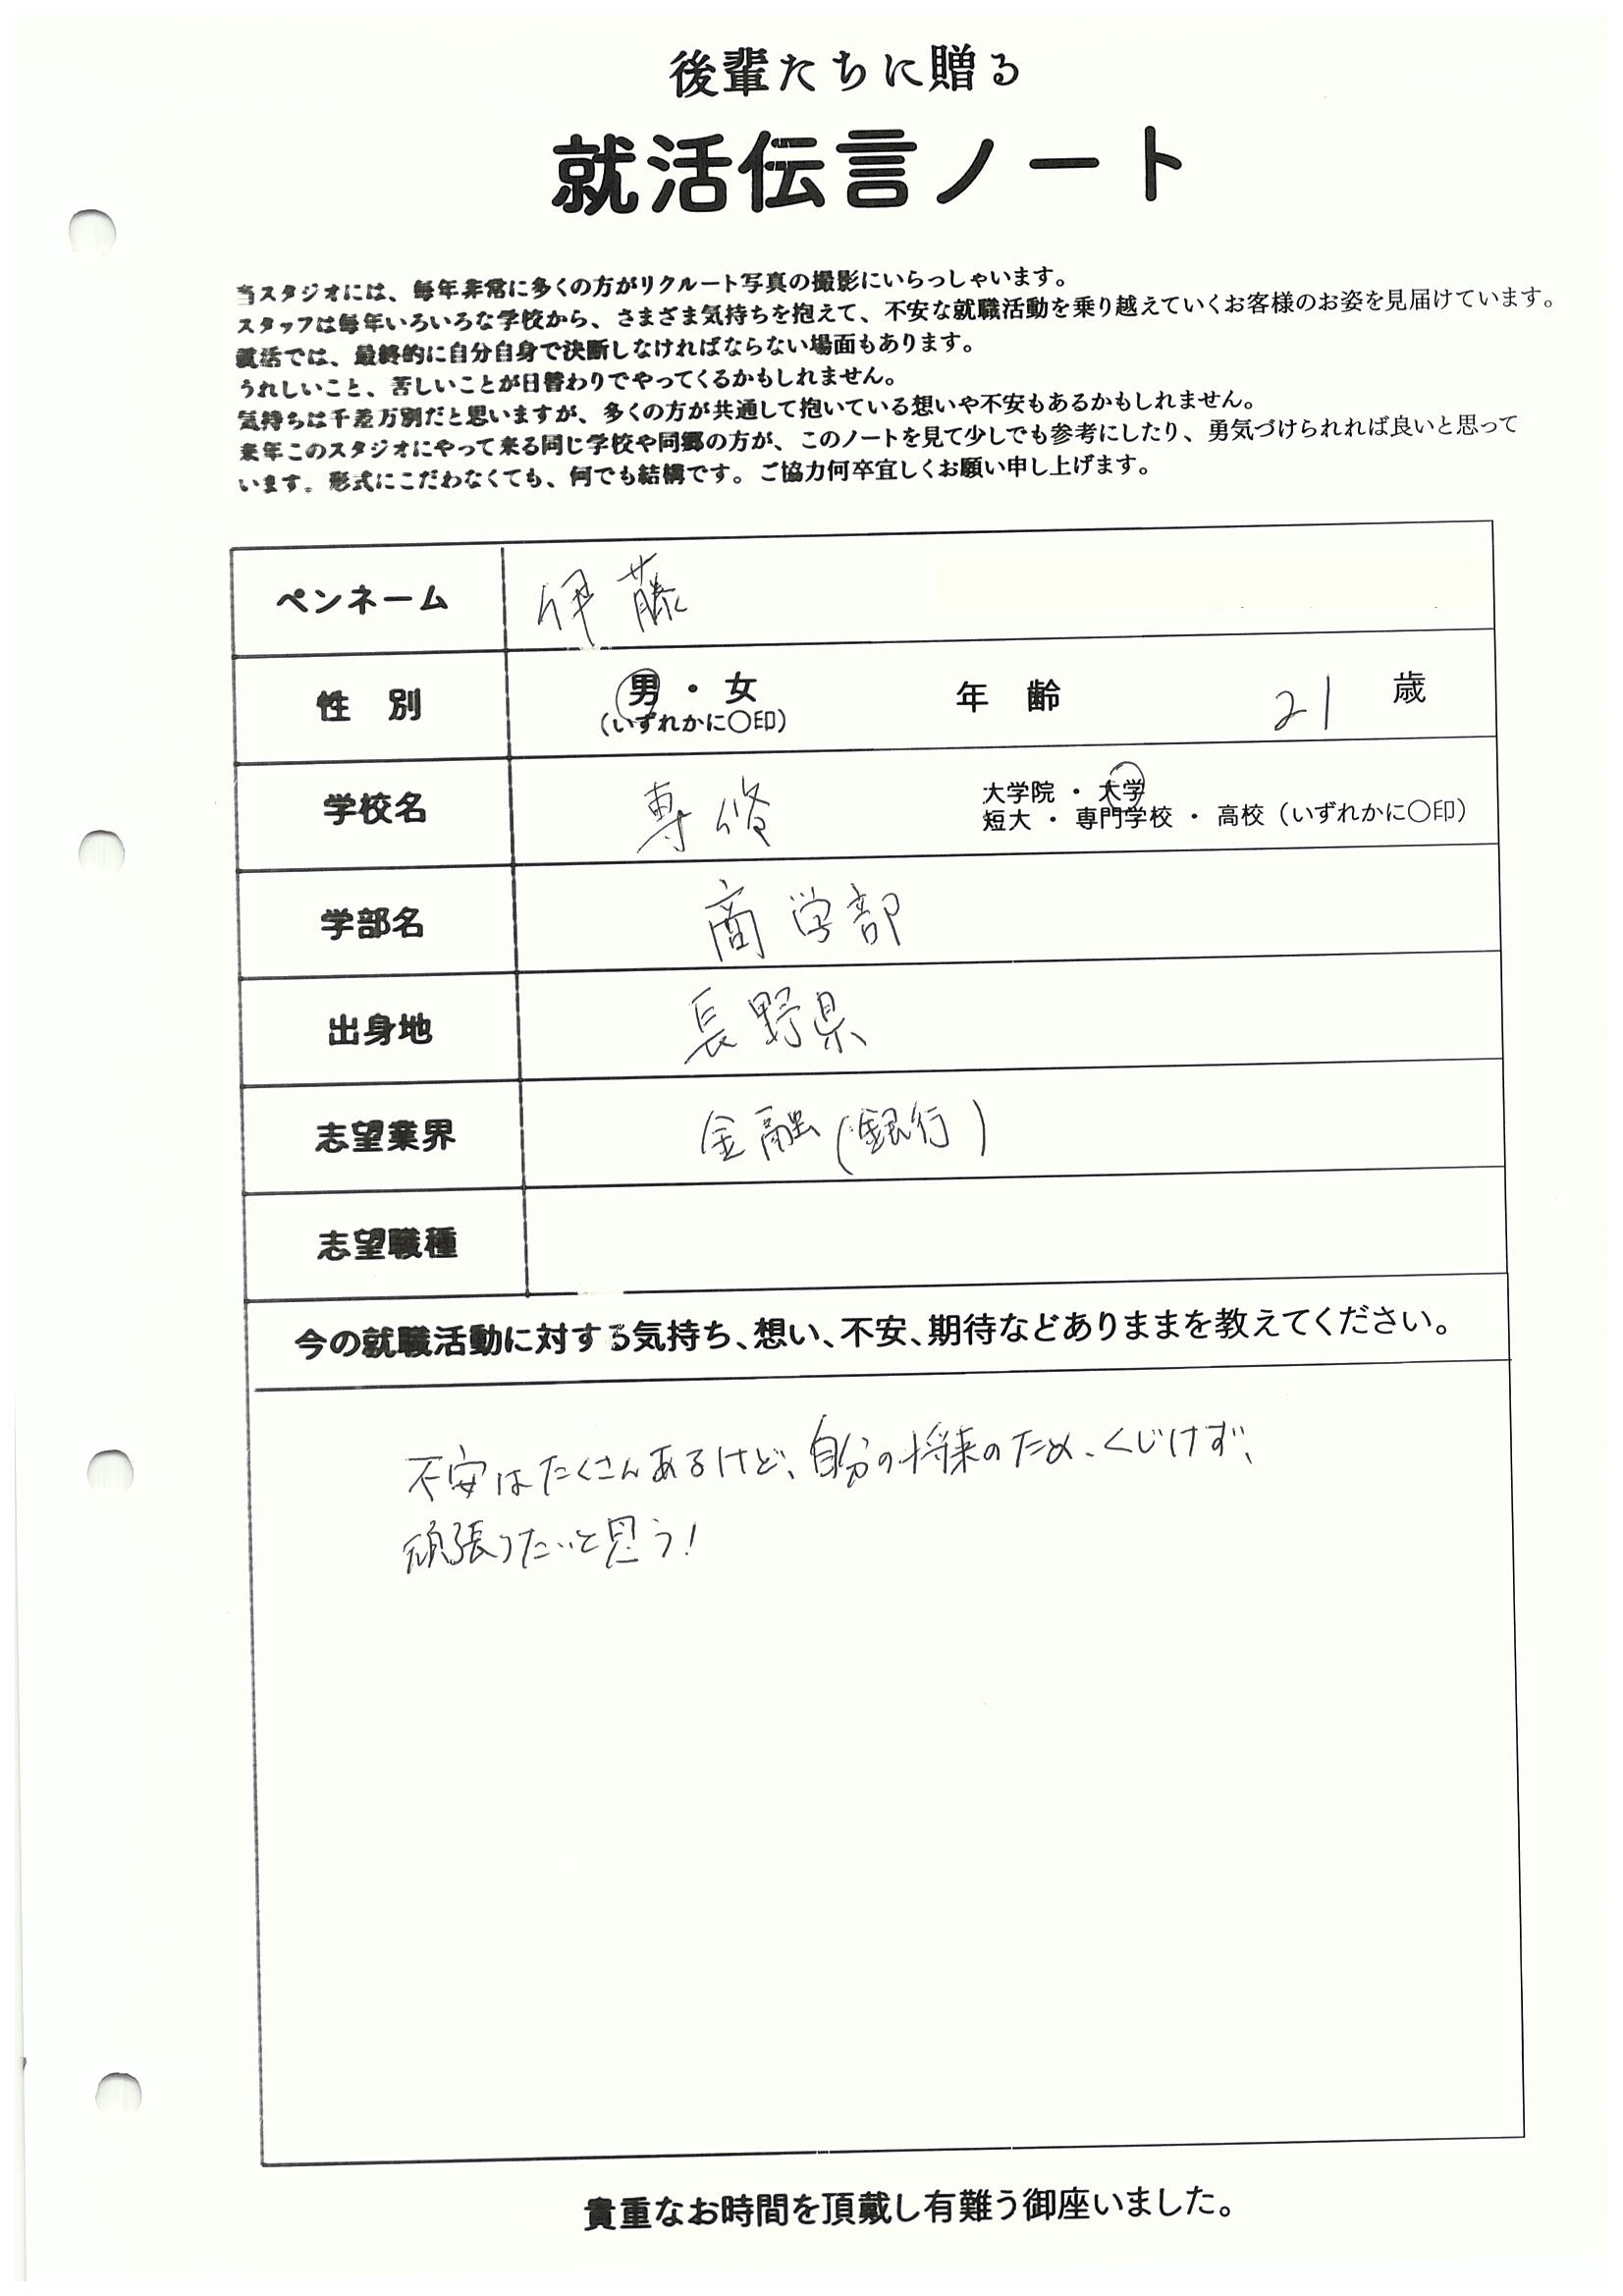 後輩たちに贈る
就活伝言ノート
当スタジオには、毎年非常に多くの方がリクルート写真の撮影にいらっしゃいます。
スタッフは毎年いろいろな学校から、さまざま気持ちを抱えて、不安な就職活動を乗り越えていくお客様のお姿を見届けています。
就活では、最終的に自分自身で決断しなければならない場面もあります。
うれしいこと、苦しいことが日替わりでやってくるかもしれません。
気持ちは千差万別だと思いますが、多くの方が共通して抱いている想いや不安もあるかもしれません。
来年このスタジオにやって来る同じ学校や同郷の方が、このノートを見て少しでも参考にしたり、勇気づけられれば良いと思って
います。形式にこだわなくても、何でも結構です。ご協力何卒宜しくお願い申し上げます。
ペンネーム 伊藤
性別 男・女 年齢 21 歳
(いずれかに〇印)
学校名 専修 大学院・大学
短大・専門学校・高校(いずれかに〇印)
学部名 商学部
出身地 長野県
志望業界 金融(銀行)
志望職種
今の就職活動に対する気持ち、想い、不安、期待などありままを教えてください。
不安はたくさんあるけど、自分の将来のため、くじけず、
頑張りたいと思う!
貴重なお時間を頂戴し有難う御座いました。